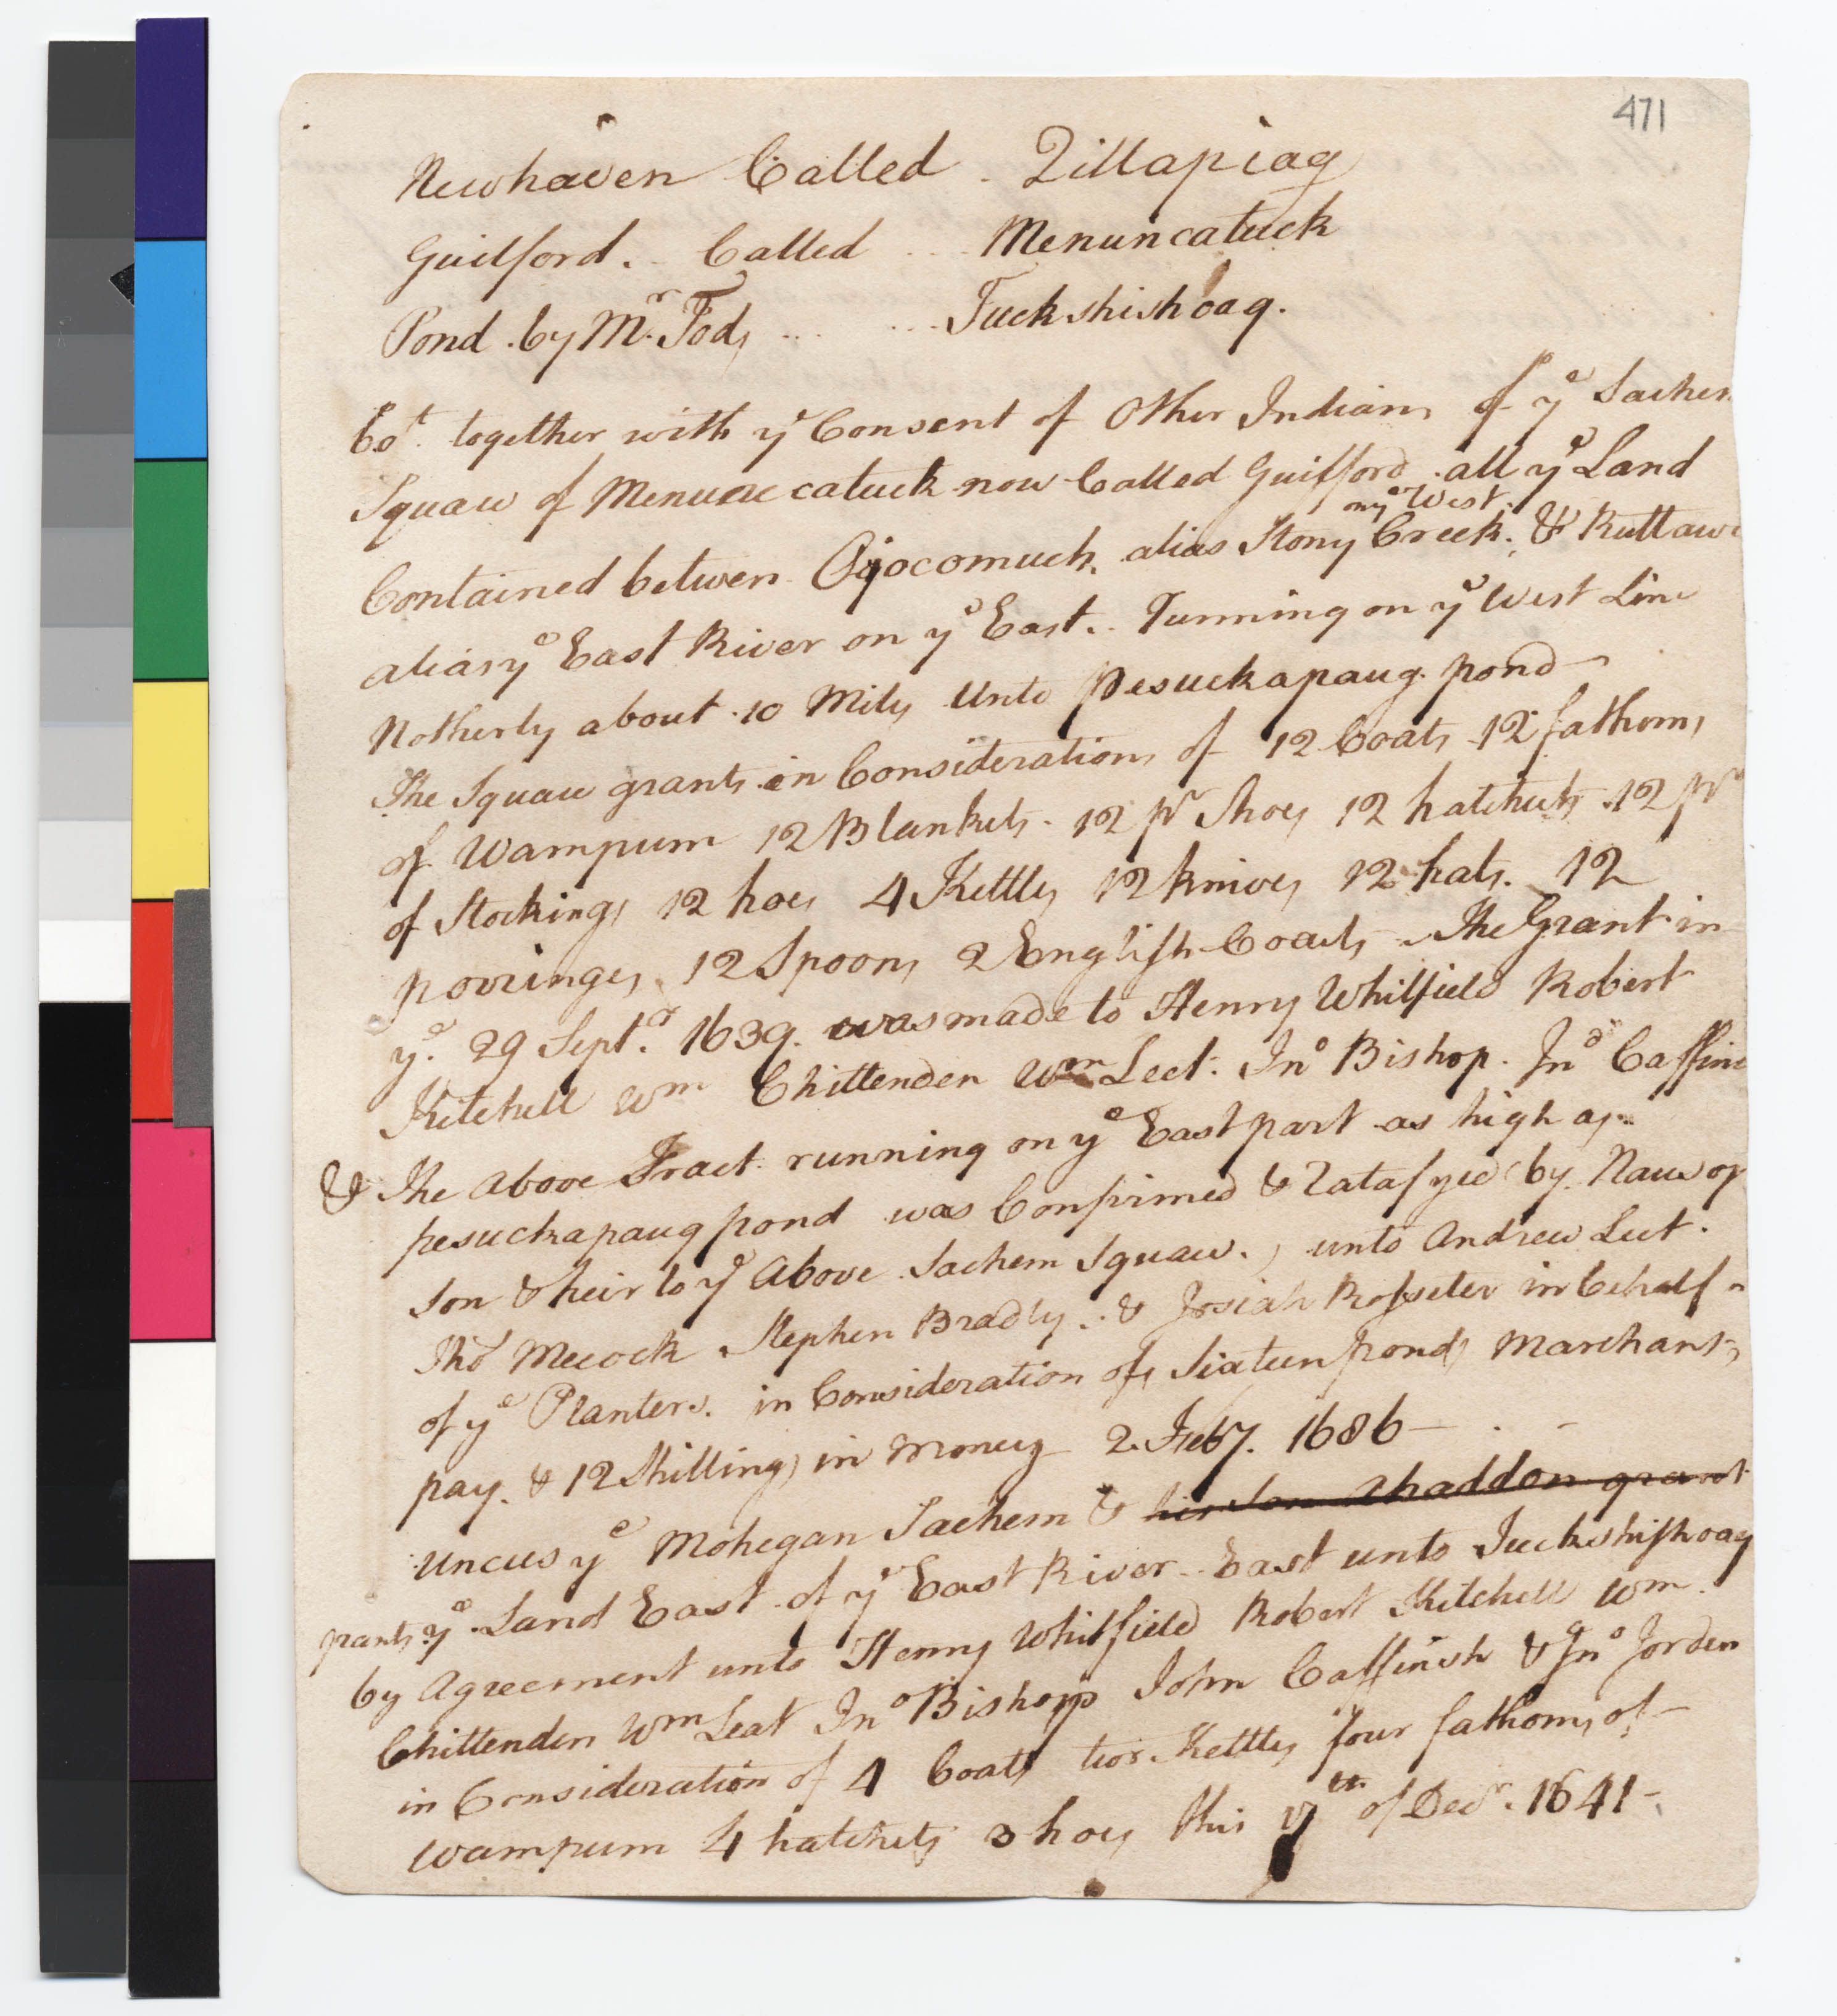 471
Newhaven Called . Qillapiag
Guilford . Called ... Menuncatuck
Pond . by Mr. Tods ... ... Tuckshishoag.
Cot. together with ye Consent of Other Indians of ye Sachem
Squaw of Menuncatuck now Called Guilford . all ye Land
on ye West.
Contained betwen Ojocomuch, alias Stony Creek. & Kuttaw
alias ye East River on ye East.. Running on ye West Line
Notherly about 10 Miles Unto Pesuckapaug pond
The Squaw grants in Considerations of 12 Coats 12 fathoms
of Wampum 12 Blankets. 12 pr Shoes 12 hatchets 12 pr
of Stockings 12 hoes 4 Kettles 12 knives 12 hats. 12
porringes, 12 Spoons 2 English Coats The Grant in
ye. 29 Septr. 1639. was made to Henry Whitfield Robert
Kitchell Wm Chittenden Wm Leet. Jno Bishop. Jno Caffine
& The Above Tract running on ye East part as high as
pesuckapaug pond was Confirmed & Ratafyed by. Nausop
Son & heir to ye Above Sachem Squaw. , unto Andrew Leet.
Tho Mecock Stephen Bradly . & Josiah Rosseter in behalf
of ye Planters. in Consideration of, Sixteen ponds Marchants
pay. & 12 Shillings in Money 2. Feby. 1686
Uncus ye Mohegan Sachem & his Son Ahaddon grant
grants ye Land East of ye East River East unto Tuckshishoag
by Agreement unto Henry Whitfield Robert Kitchell Wm.
Chittenden Wm Leat Jno Bishop John Caffinch & Jno Jorden
in Consideration of 4 Coats two Kettles four fathoms of
wampum 4 hatchets 3 hoes this 17th of Decr. 1641